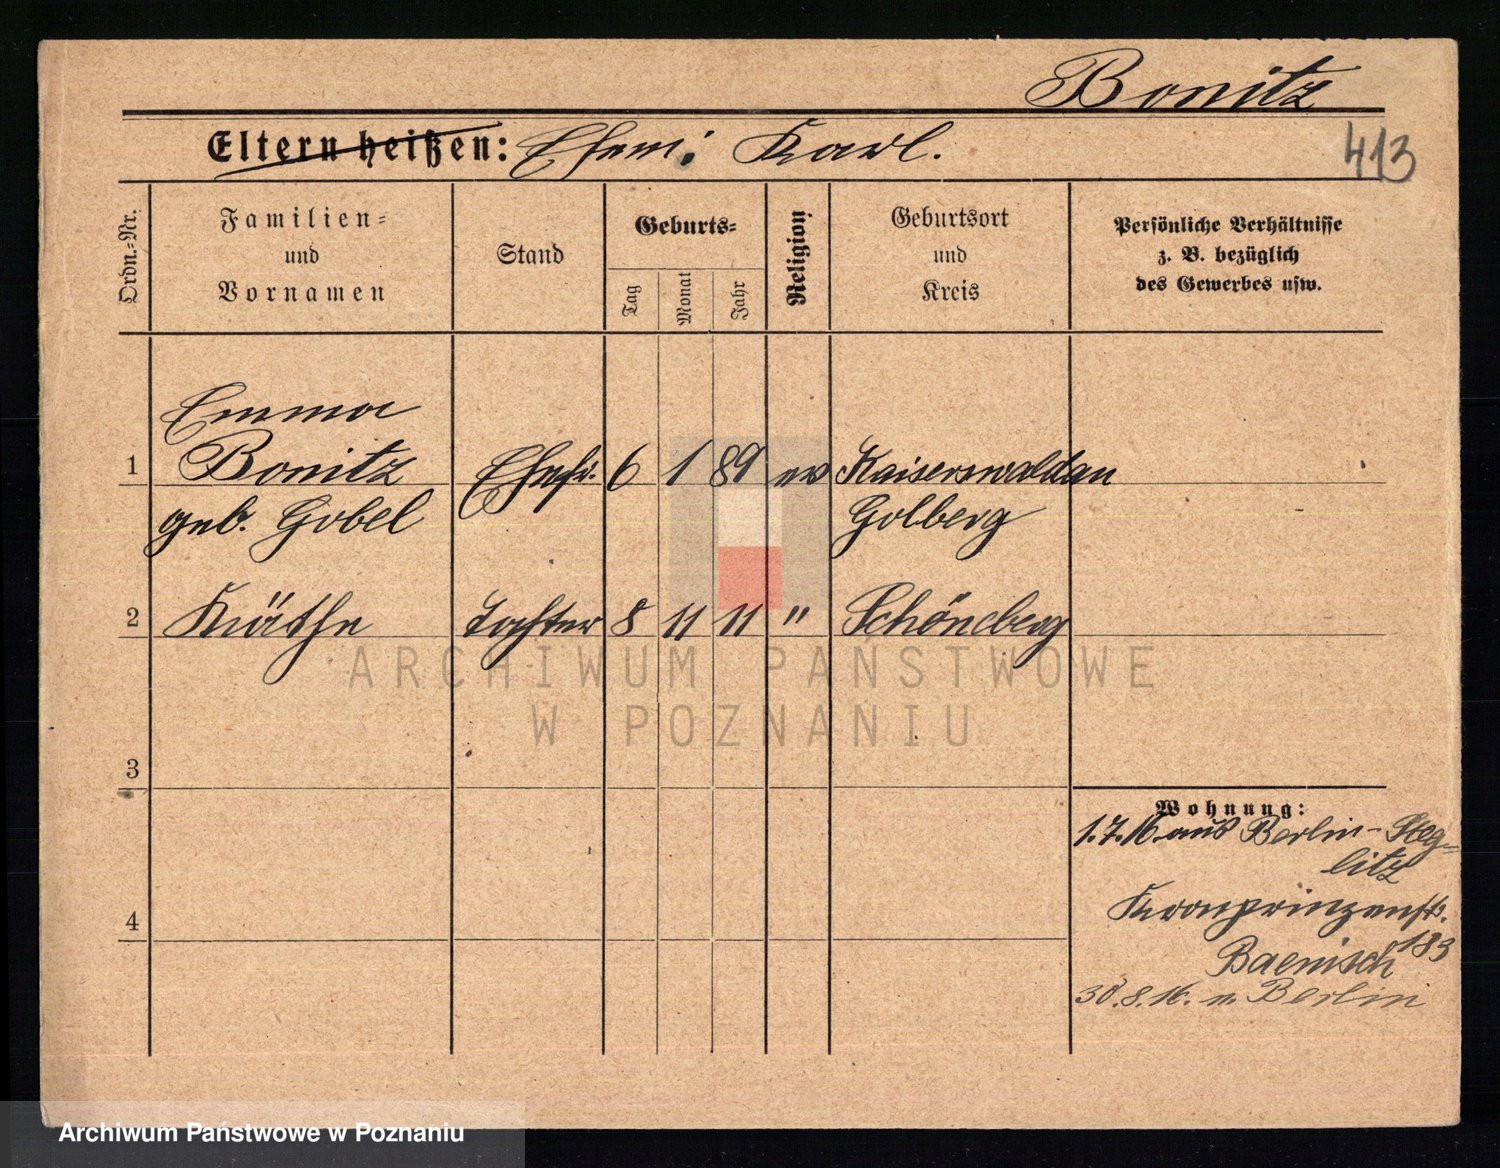 Bonitz
Eltern heißen: Ehem: Karl.
413
Ordn.=Nr.
Familien=
und
Vornamen
Stand
Geburts=
Tag
Monat
Jahr
Religion
Geburtsort
und
Kreis
Persönliche Verhältnisse
z. B. bezüglich
des Gewerbes usw.
Emma
1 Bonitz Ehefr. 6 1 89 ev Kaiserswaldau
geb. Gobel Golberg
2 Käthe Tochter 8 11 11 " Schöneberg
3
Wohnung:
1.7.16. aus Berlin-Steg=
litz
Kronprinzenstr.
183
4
Baenisch
30.8.16. n. Berlin
ARCHIWUM PAŃSTWOWE
W POZNANIU
Archiwum Państwowe w Poznaniu